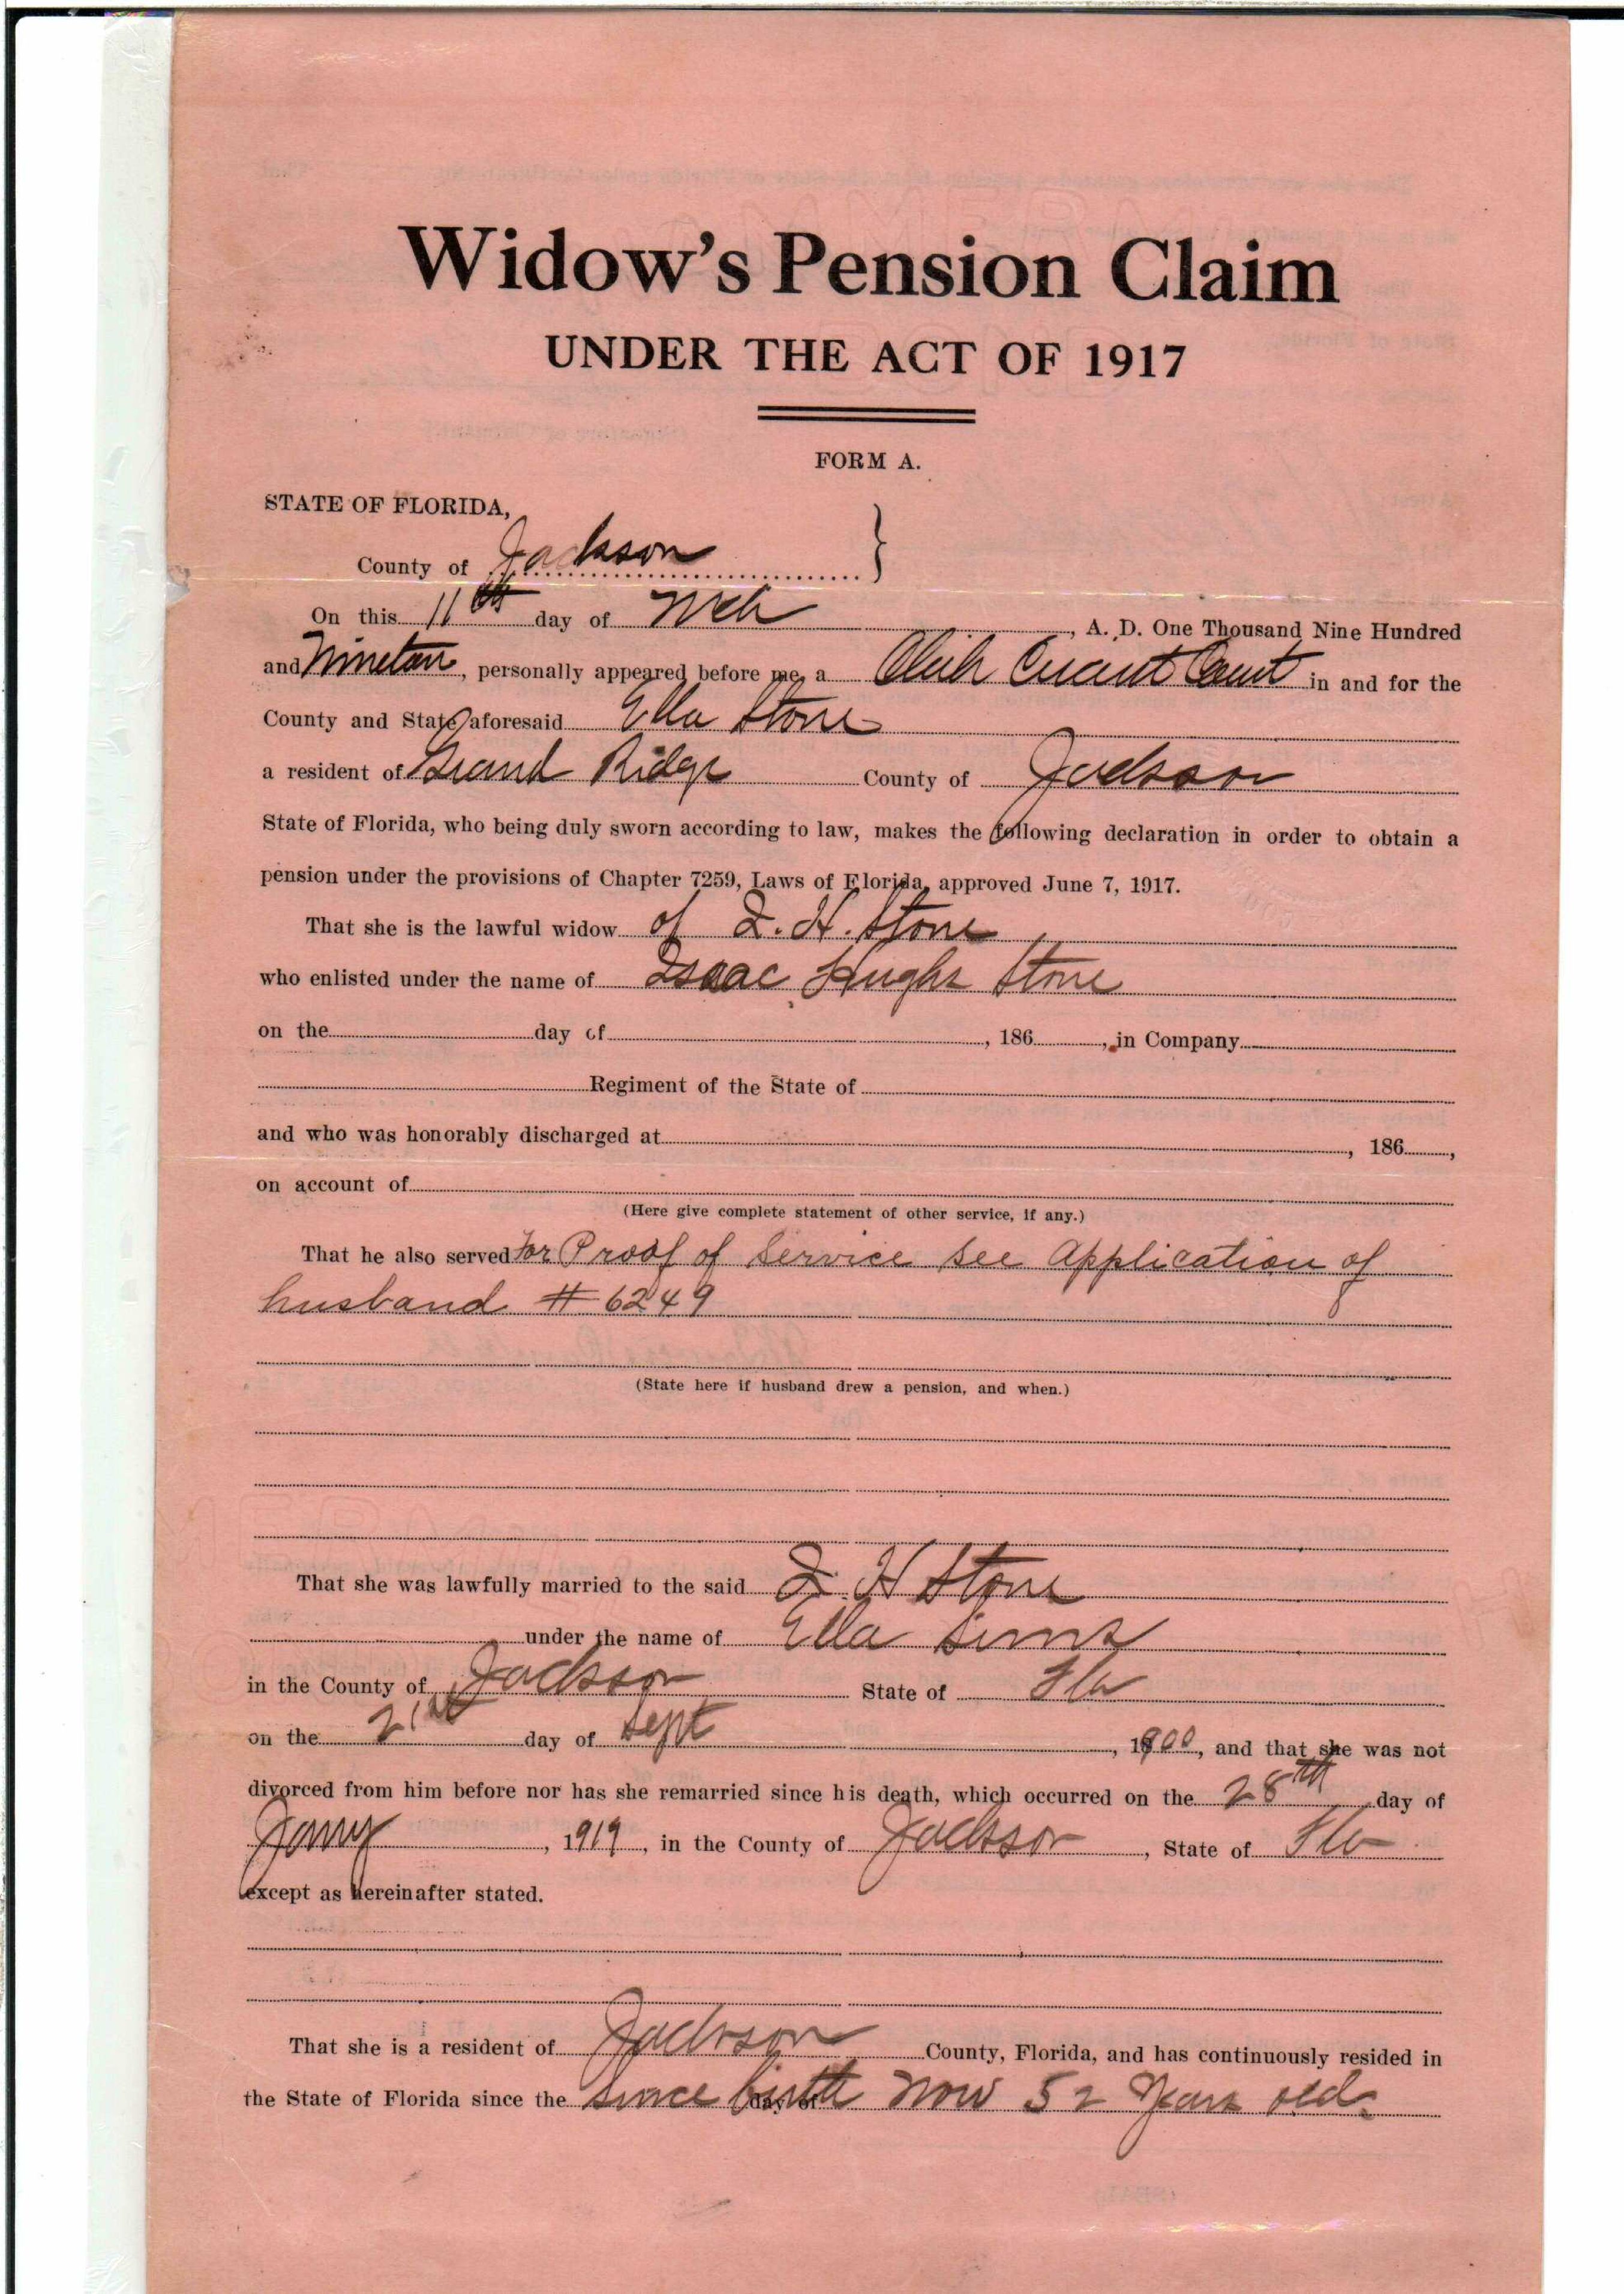 Widow's Pension Claim
UNDER THE ACT OF 1917
FORM A.
STATE OF FLORIDA,
County of Jackson }
On this 11th day of Mch , A. D. One Thousand Nine Hundred
and Nineteen, personally appeared before me, a Clerk Circuit Court in and for the
County and State aforesaid Ella Stone
a resident of Grand Ridge County of Jackson
State of Florida, who being duly sworn according to law, makes the following declaration in order to obtain a
pension under the provisions of Chapter 7259, Laws of Florida, approved June 7, 1917.
That she is the lawful widow of I. H. Stone
who enlisted under the name of Isaac Hughs Stone
on the day of , 186 , in Company
Regiment of the State of
and who was honorably discharged at , 186 ,
on account of
(Here give complete statement of other service, if any.)
That he also served For Proof of Service see Application of
husband # 6249
(State here if husband drew a pension, and when.)
That she was lawfully married to the said I. H Stone
under the name of Ella Sims
in the County of Jackson State of Fla
on the 21st day of Sept , 1900, and that she was not
divorced from him before nor has she remarried since his death, which occurred on the 28th day of
Jany , 1919, in the County of Jackson , State of Fla
except as hereinafter stated.
That she is a resident of Jackson County, Florida, and has continuously resided in
the State of Florida since the since birth day of now 52 years old.